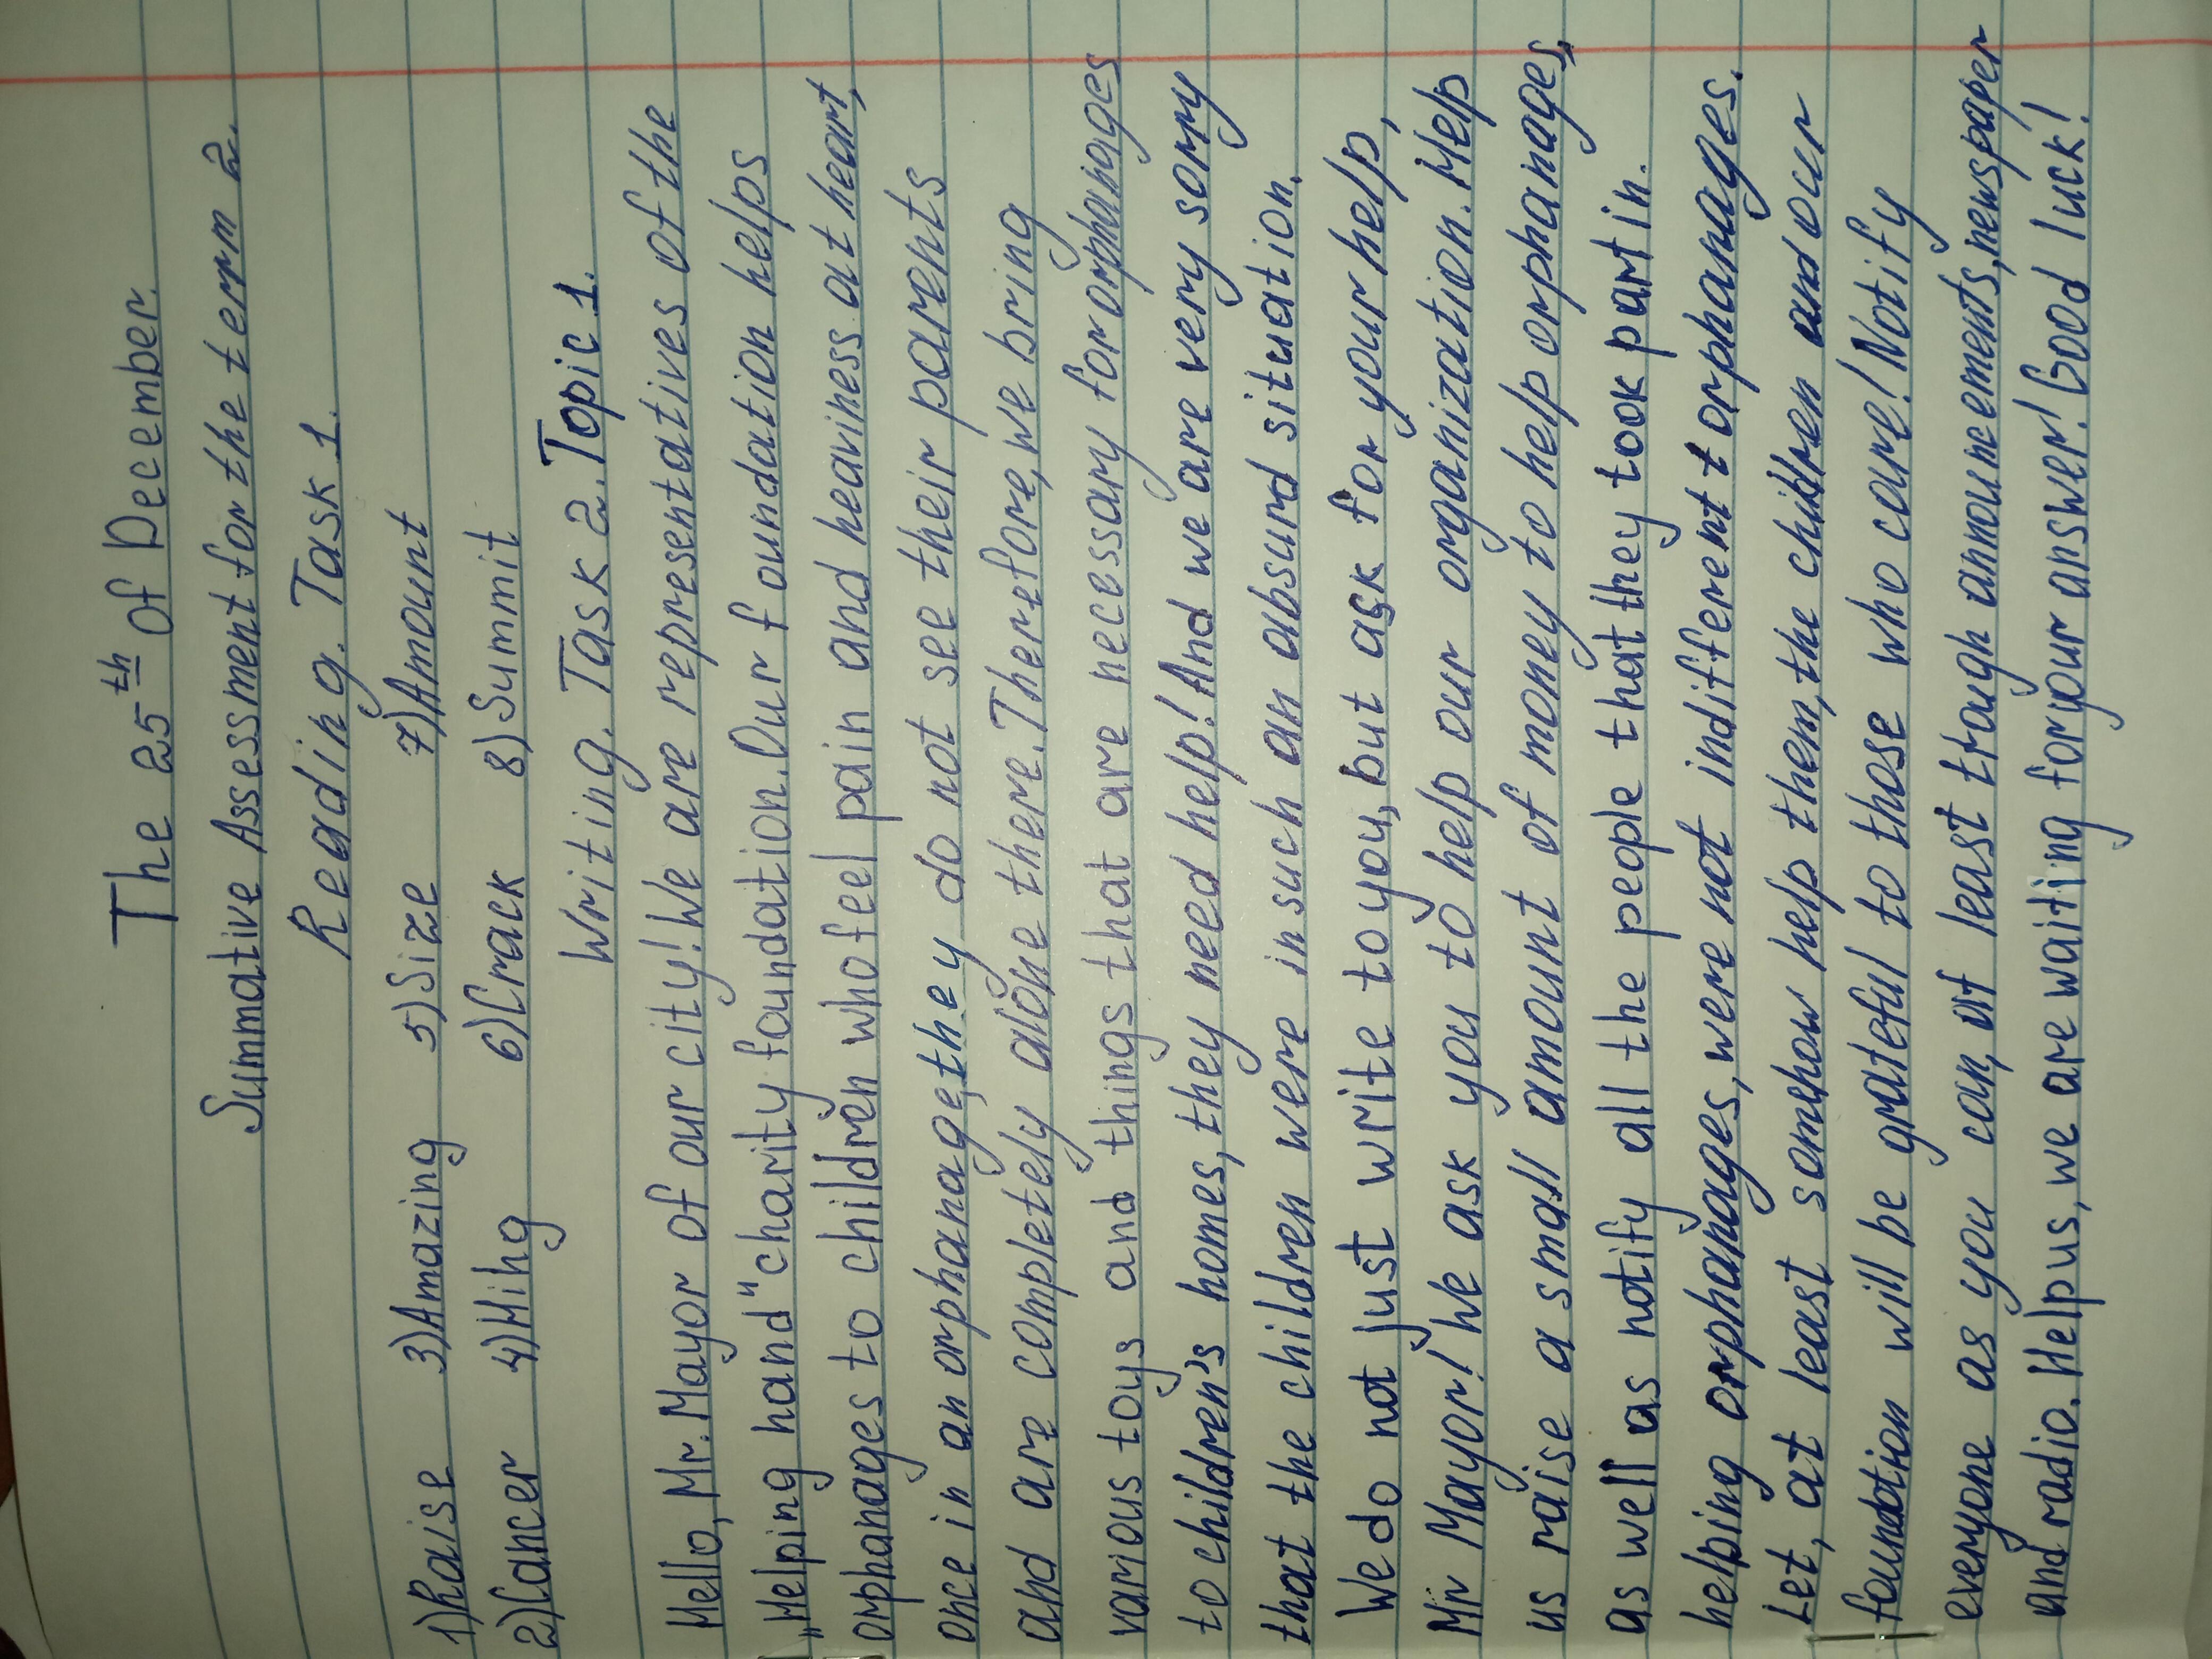 The 25th Of December.
Summative Assessment for the term 2.
Reading. Task 1.
1) Raise 3) Amazing 5) Size 7) Amount
2) Cancer 4) Hihg 6) Crack 8) Summit
Writing. Task 2. Topic 1.
Hello, Mr. Mayor of our city! We are representatives of the
„Helping hand" charity foundation. Our foundation helps
orphanages to children who feel pain and heaviness at heart,
once in an orphanage, they do not see their parents
and are completely alone there. Therefore, we bring
various toys and things that are necessary for orphanages
to children's homes, they need help! And we are very sorry
that the children were in such an absurd situation.
We do not just write to you, but ask for your help,
Mr Mayor! We ask you to help our organization. Help
us raise a small amount of money to help orphanages,
as well as notify all the people that they took part in.
helping orphanages, were not indifferent t orphanages.
Let, at least somehow help them, the children and our
foundation will be grateful to those who care! Notify
everyone as you can, at least trough announcements, newspaper
and radio. Help us, we are waiting for your answer! Good luck!